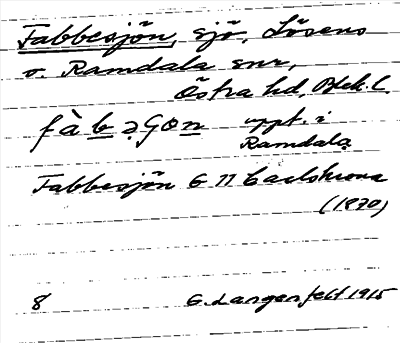 Fabbesjön, sjö, Lösens
o. Ramdala snr,
Östra hd, Blek. l.
fàbəʃon uppt. i
Ramdala
Fabbesjön G 77 Carlskrona
(1870)
8 G. Langenfelt 1915